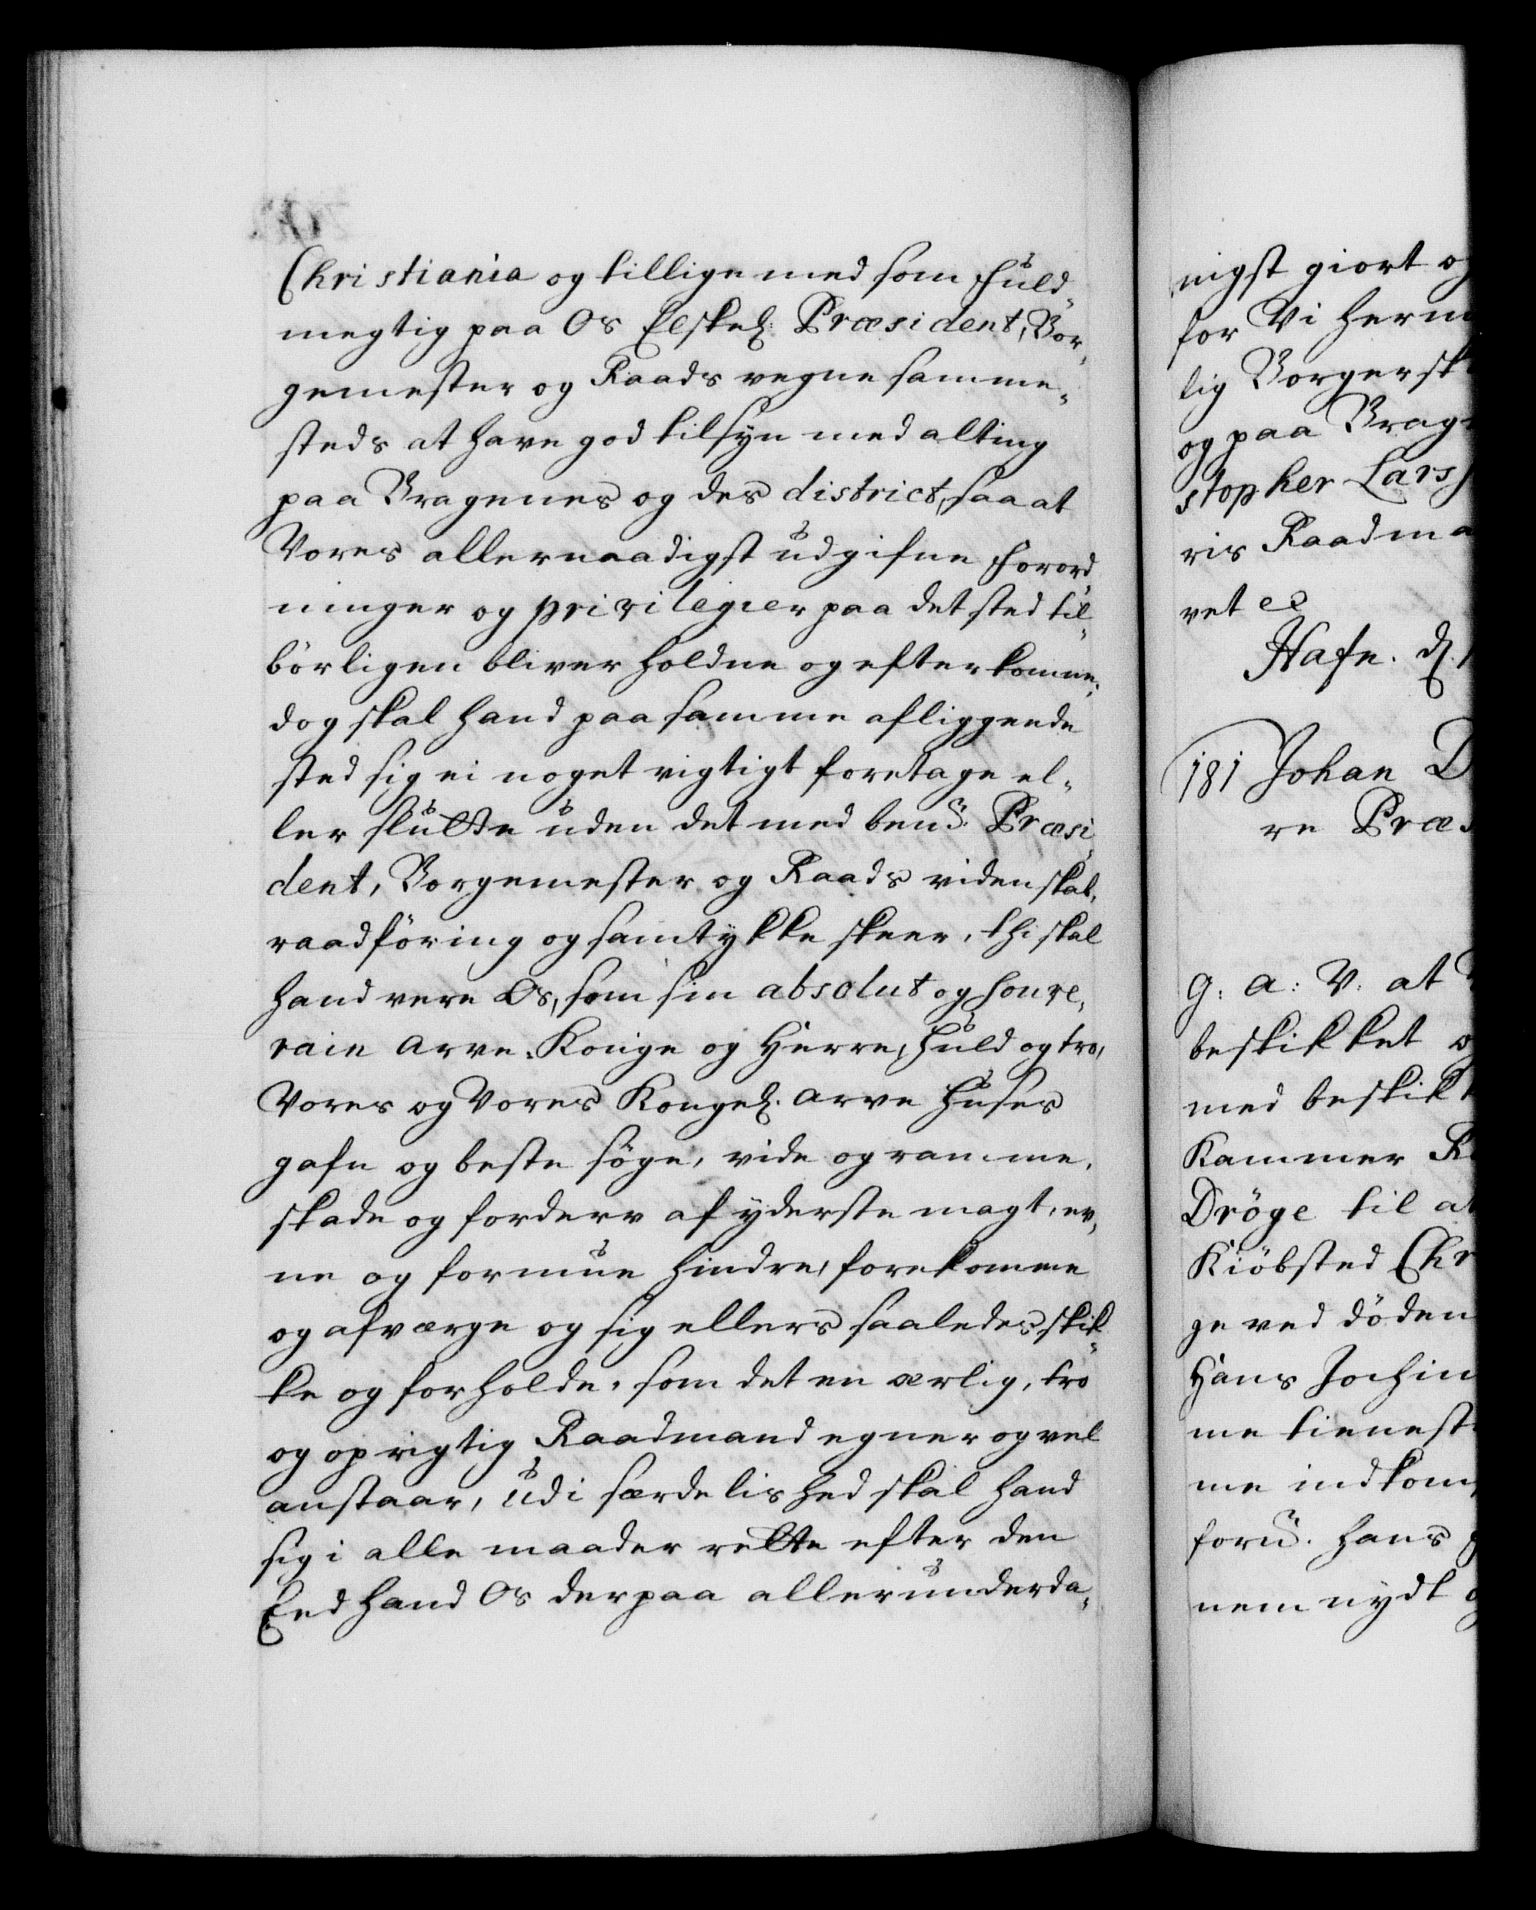 Christiania og tillige med som fuld-
megtig paa Os Elskel: Præsident, Bor-
gemester og Raads vegne samme-
steds at have god tilsyn med alting
paa Bragenes og des district, saa at
Vores allernaadigst udgifne forord-
ninger og privilegier paa det sted til-
börligen bliver holdne og efterkomne,
dog skal hand paa samme afliggende
sted sig ei noget vigtigt foretage el-
ler slutte uden det med bemt: Præsi-
dent, Borgemester og Raads videnskab,
raadföring og samtykke skeer, thi skal
hand vere Os, som sin absolut og souve-
rain Arve-Konge og Herre, huld og tro,
Vores og Vores Kongel: Arve Huses
gafn og beste söge, vide og ramme,
skade og forderv af yderste magt, ev-
ne og formue hindre, forekomme
og afværge og sig ellers saaledes skik-
ke og forholde, som det en ærlig, tro
og oprigtig Raadmand egner og vel
anstaar, udi særdelished skal hand
sig i alle maader rette efter den
Eed hand Os derpaa allerunderda-
nigst giort
for Vi herm
lig Borgersk
og paa Brag
stopher Larss
ris Raadma
vet
Hafn. d.
181 Johan D
re Præs
G: A: V: at
beskikket
med beskik
Kammer R
Dröge til at
Kiöbsted Chr
ge ved döden
Hans Jochim
me tienest
me indkom
foru. hans
nem nydt